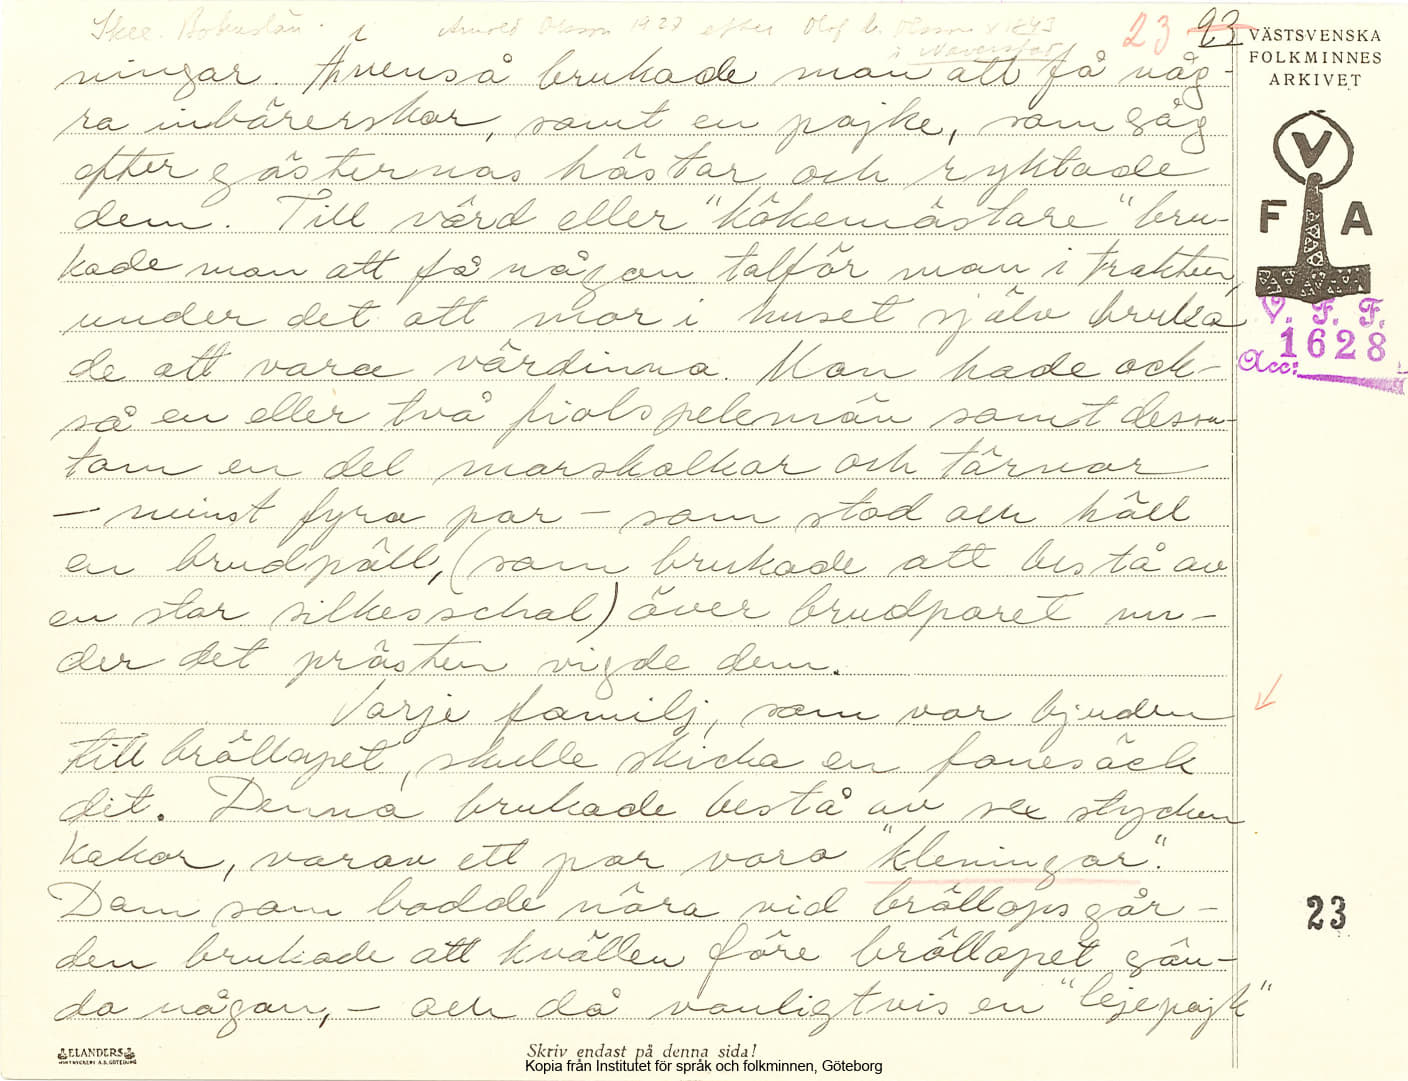 Skee. Bohuslän. Arnold Olsson 1927 efter Olof M. Olsson f. 1843
i Naverstad
23 23
VÄSTSVENSKA
FOLKMINNES
ARKIVET
V
F A
V. F. F.
1628
Acc:
ningar. Ävenså brukade man att få någ-
ra inbärerskor, samt en pojke, som gåg
efter gästernas hästar och ryktade
dem. Till värd eller "kökemästare" bru-
kade man att få någon talför man i trakten,
under det att mor i huset själv bruka
de att vara värdinna. Man hade ock-
så en eller två fiolspelemän samt dessu-
tom en del marskalkar och tärnor
— minst fyra par — som stod och häll
en brudpäll, (som brukade att bestå av
en stor silkesschal) över brudparet un-
der det prästen vigde dem.
Varje familj, som var bjuden
till bröllopet, skulle skicka en fonesäck
dit. Denna brukade bestå av sex stycken
kakor, varav ett par voro "kleningor".
Dom som bodde nära vid bröllopsgår-
den brukade att kvällen före bröllopet sän-
da någon, — och då vanligtvis en "lejepojk"
23
ELANDERS
Skriv endast på denna sida!
Kopia från Institutet för språk och folkminnen, Göteborg